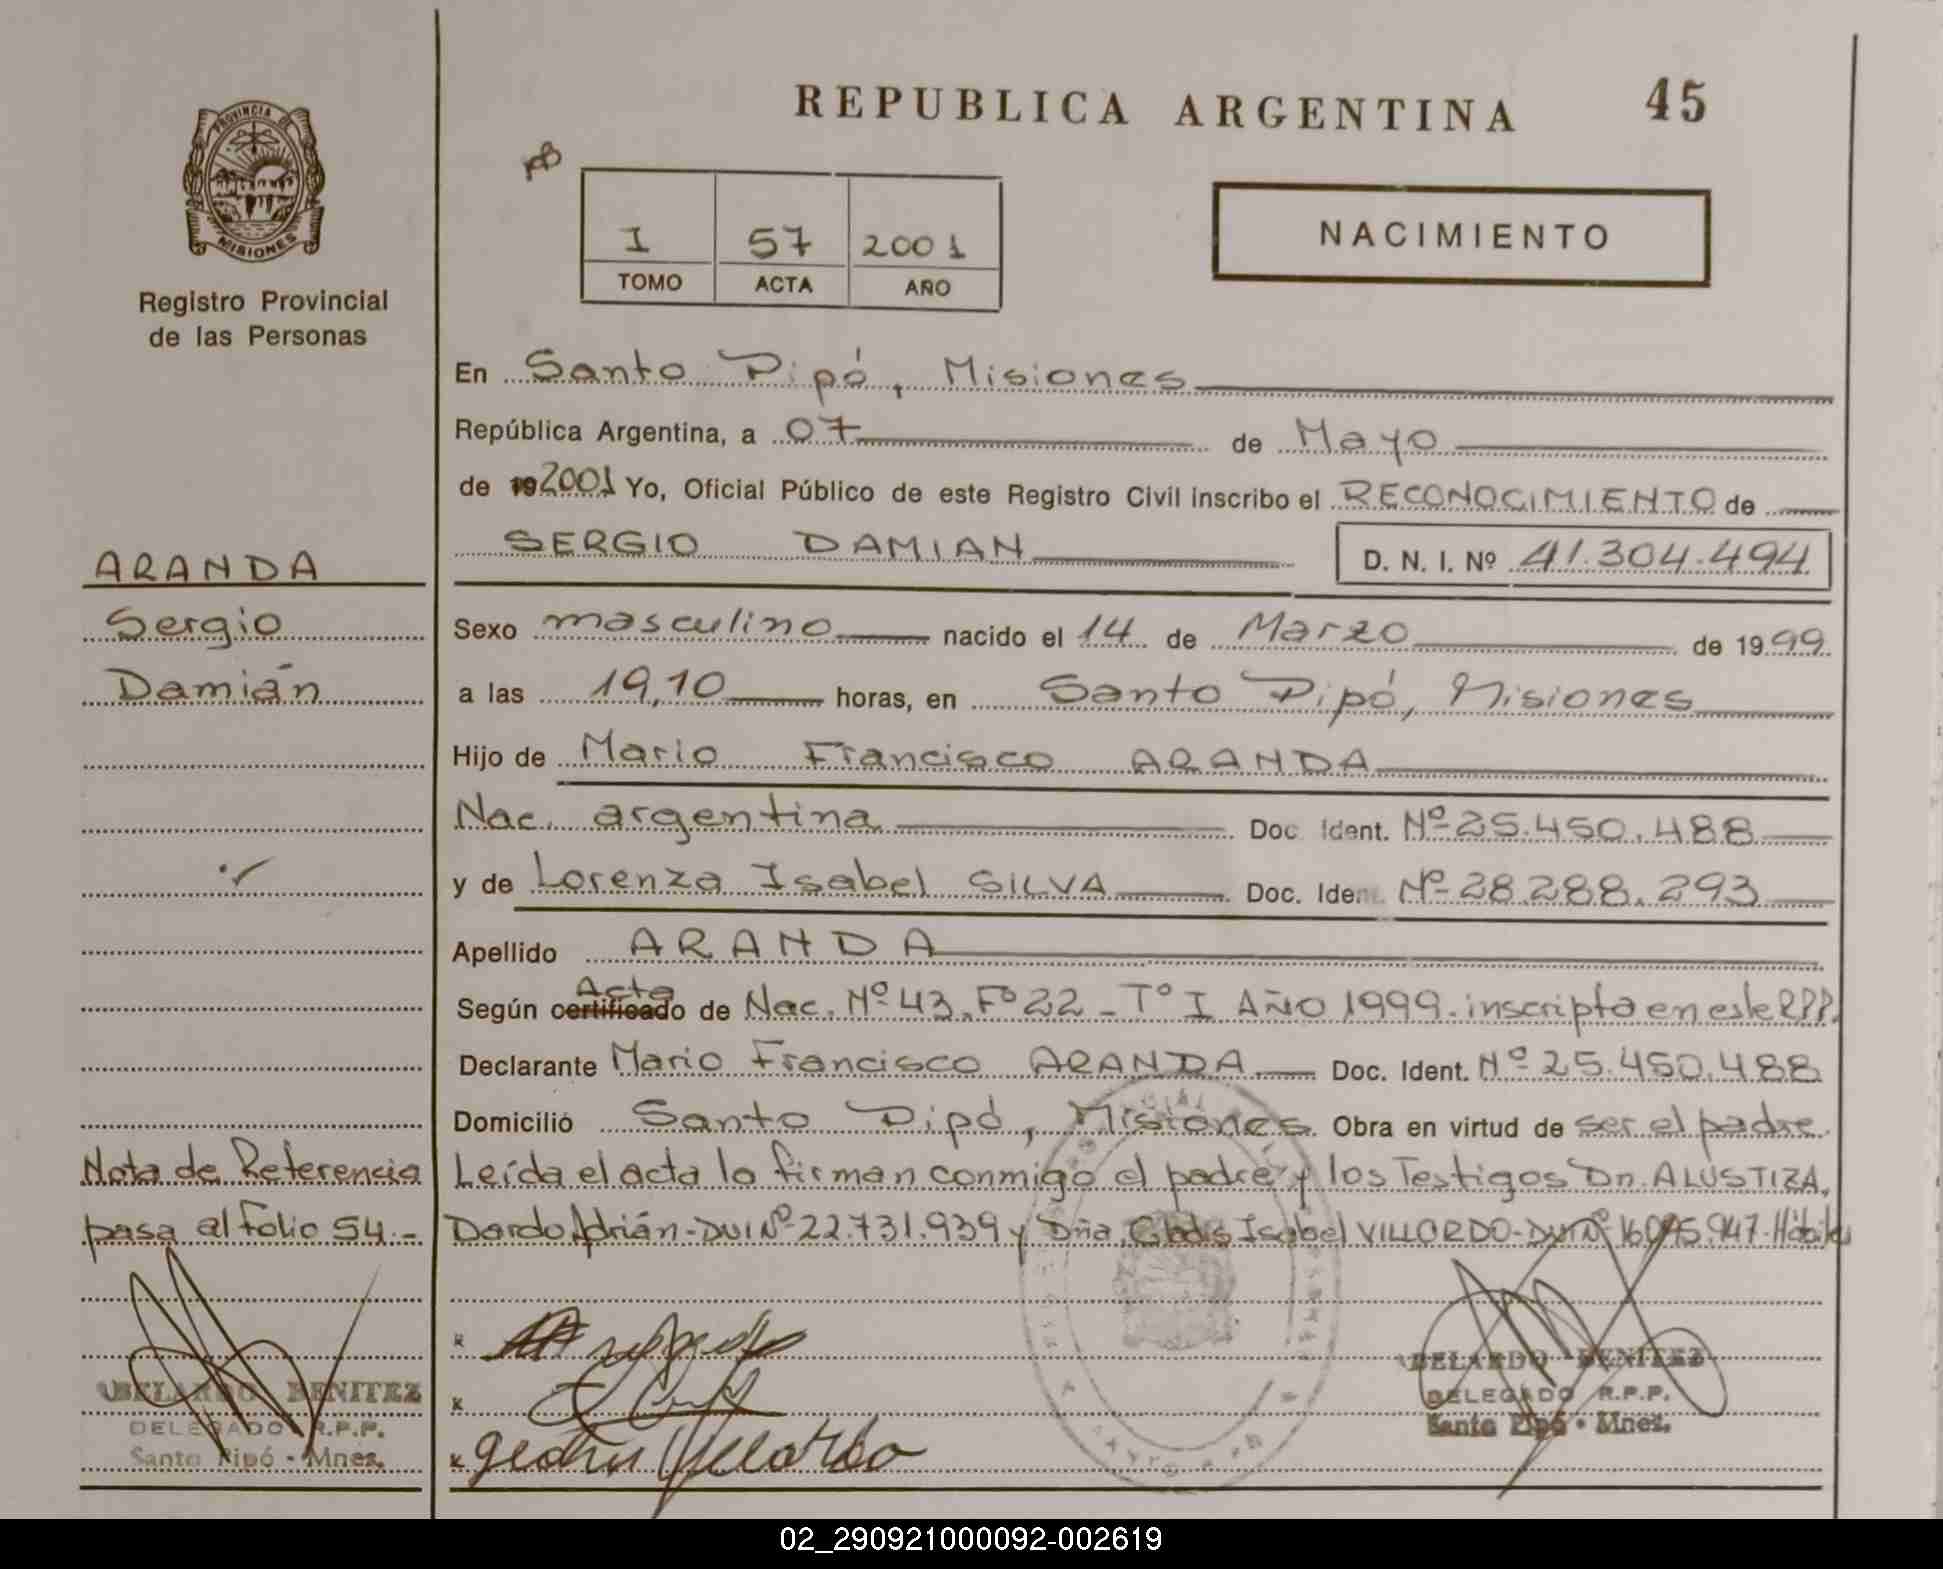 REPUBLICA ARGENTINA 45
PROVINCIA DE
MISIONES
Registro Provincial
de las Personas
I 57 2001
TOMO ACTA AÑO
NACIMIENTO
En Santo Pipó, Misiones
República Argentina, a 07 de Mayo
de 19 2001 Yo, Oficial Público de este Registro Civil inscribo el RECONOCIMIENTO de
SERGIO DAMIAN D. N. I. Nº 41.304.494
ARANDA
Sergio
Damián
Sexo masculino nacido el 14 de Marzo de 1999
a las 19,10 horas, en Santo Pipó, Misiones
Hijo de Mario Francisco ARANDA
Nac. argentina Doc. Ident. Nº 25.450.488
y de Lorenza Isabel SILVA Doc. Ident. Nº 28.288.293
Apellido ARANDA
Acta
Según certificado de Nac. Nº 43. Fº 22 - Tº I AÑO 1999. inscripta en este RPP.
Declarante Mario Francisco ARANDA Doc. Ident. Nº 25.450.488
Domicilió Santo Pipó, Misiones Obra en virtud de ser el padre
Leída el acta la firman conmigo el padre y los Testigos Dn. ALUSTIZA,
Dardo Adrián - DNI Nº 22.731.939 y Dña. Gladis Isabel VILLORDO - DNI Nº 16.095.947. Hábiles
Nota de Referencia
pasa al folio 54.-
ABELARDO BENITEZ
DELEGADO R.P.P.
Santo Pipó - Mnes.
Villordo
ABELARDO BENITEZ
DELEGADO R.P.P.
Santo Pipó - Mnes.
02_290921000092-002619